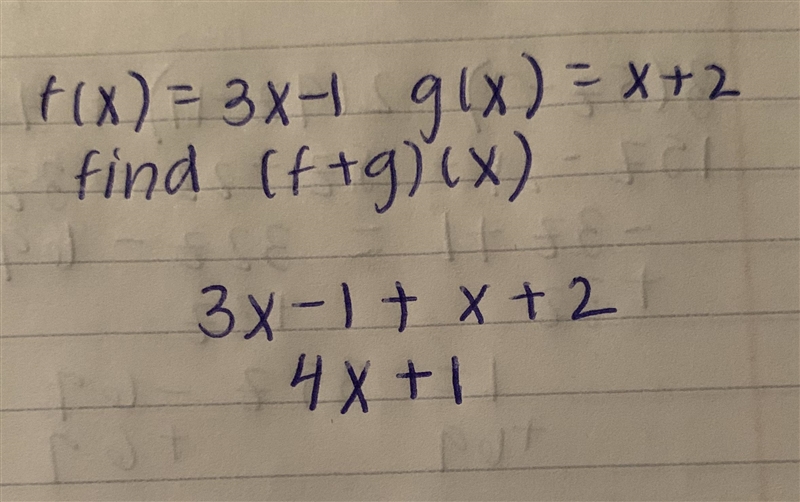 f(x) = 3x-1 g(x) = x+2
find (f+g)(x)
3x-1 + x+2
4x+1